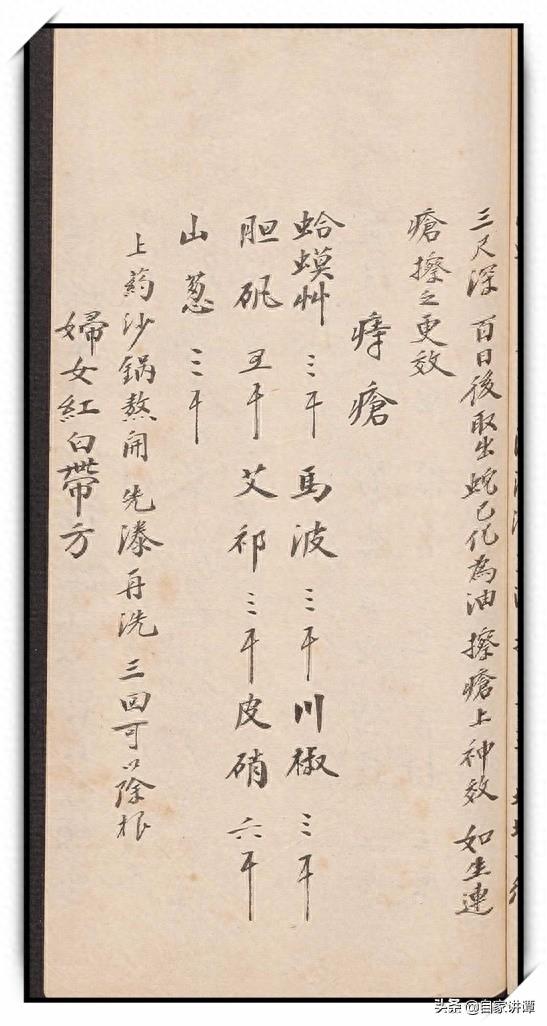 三尺深 百日後取出蛇已化為油 擦瘡上神效 如生連
瘡擦之更效
痔瘡
蛤蟆艸 三千 馬波 三千 川椒 三千
胆矾 五千 艾祁 三千 皮硝 六千
山葱 三千
上葯沙鍋熬開 先溙再洗 三回可以除根
婦女紅白帶方
头条 @自家讲谭